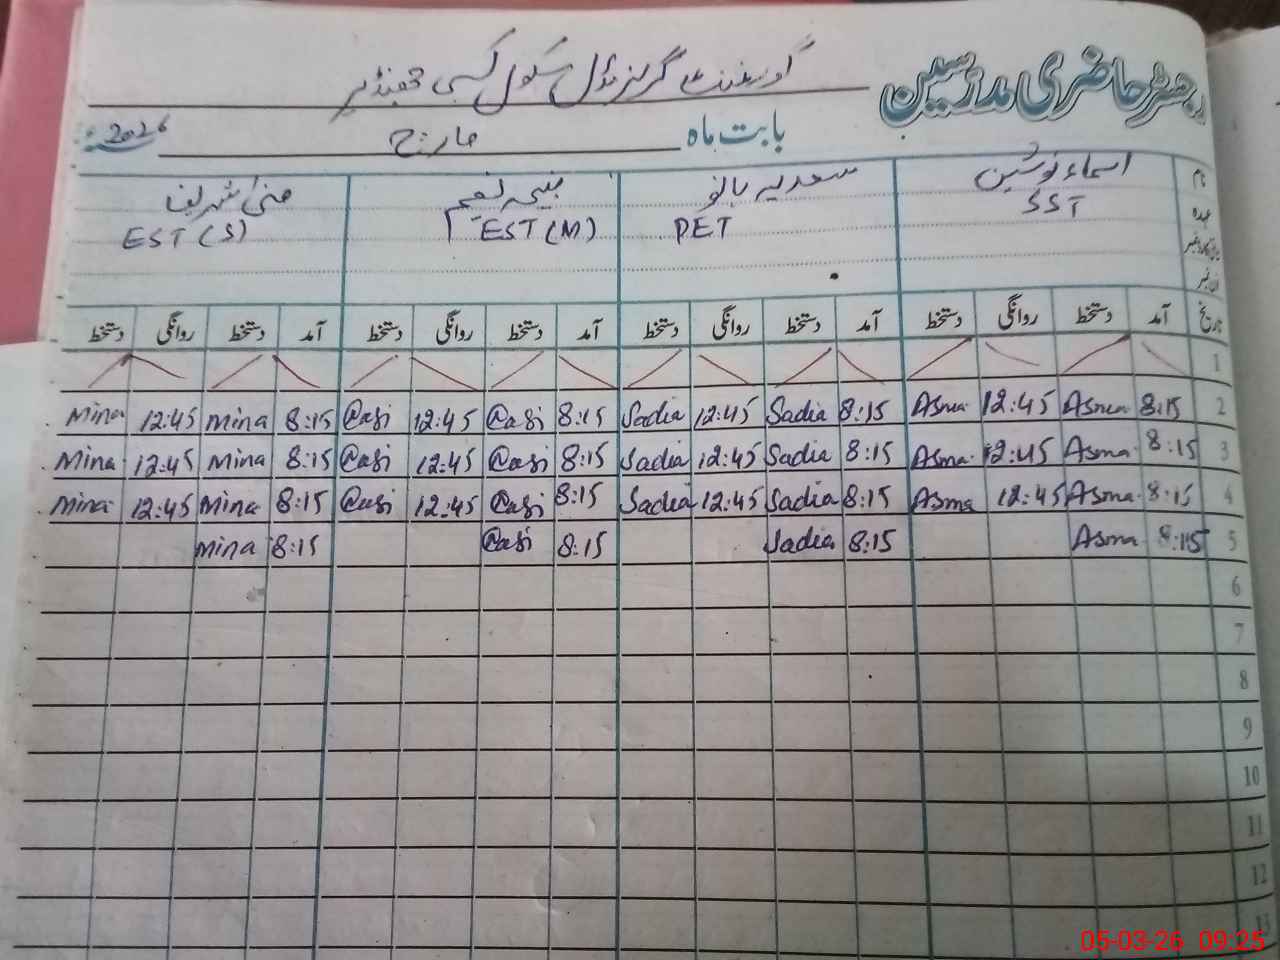 رجسٹر حاضری مدرسین
گورنمنٹ گرلز مڈل سکول کسی جھنڈیر
بابت ماہ مارچ 2026
نام اسماء نوشین سعدیہ بانو نعیم
عہدہ SST PET EST (M) EST (S)
تاریخ آمد دستخط روانگی دستخط آمد دستخط روانگی دستخط آمد دستخط روانگی دستخط آمد دستخط روانگی دستخط
1
2 8:15 Asma 12:45 Asma 8:15 Sadia 12:45 Sadia 8:15 12:45 8:15 Mina 12:45 Mina
3 8:15 Asma 12:45 Asma 8:15 Sadia 12:45 Sadia 8:15 12:45 8:15 Mina 12:45 Mina
4 8:15 Asma 12:45 Asma 8:15 Sadia 12:45 Sadia 8:15 12:45 8:15 Mina 12:45 Mina
5 8:15 Asma 8:15 Sadia 8:15 8:15 Mina
6
7
8
9
10
11
12
13
05-03-26 09:25